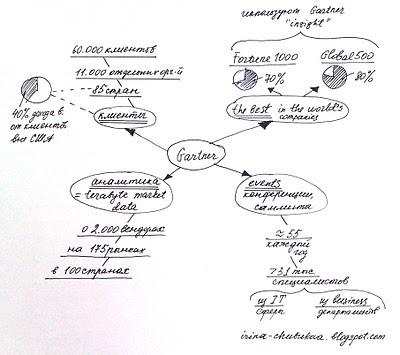 используют Gartner
"insight"
Fortune 1000
Global 500
70%
80%
the best in the world's
companies
60.000 клиентов
11.000 отдельных орг-й
85 стран
клиенты
40% дохода в.
от клиентов
вне США
Gartner
аналитика
= terabyte market
data
о 2.000 вендорах
на 175 рынках
в 100 странах
events
конференции,
саммиты
≈ 55
каждый
год
>31 тыс
специалистов
из IT
сферы
из business
департаментов
irina-chubukova.blogspot.com